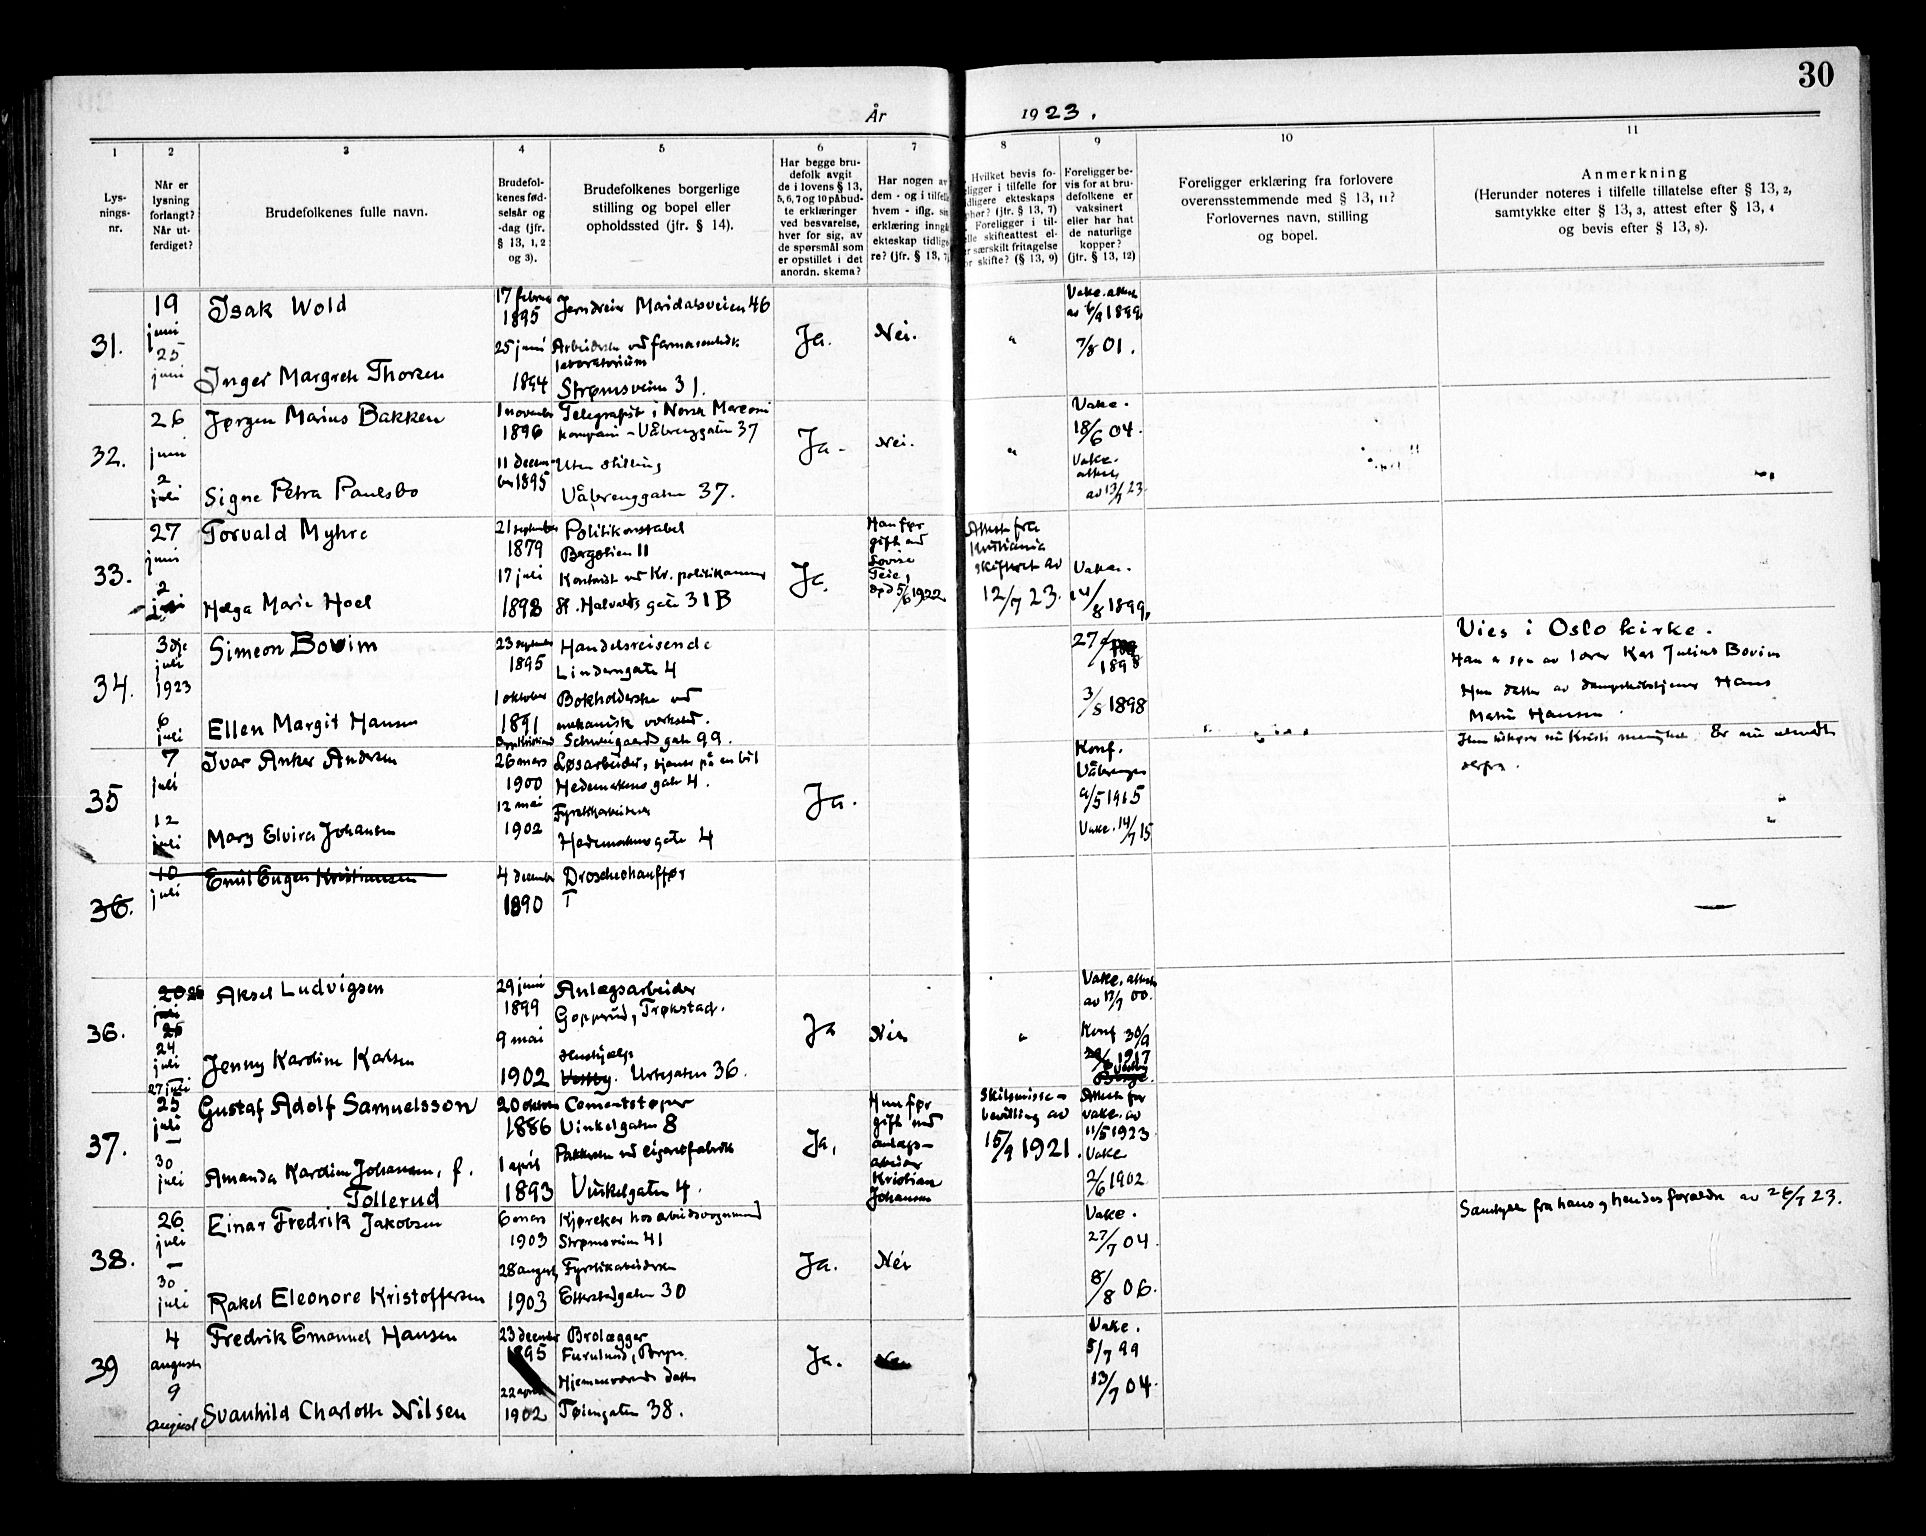 30
År 1923.
1 2 3 4 5 6 7 8 9 10 11
Lysnings-
nr.
Når er
lysning
forlangt?
Når ut-
ferdiget?
Brudefolkenes fulle navn.
Brudefol-
kenes fød-
selsår og
-dag (jfr.
§ 13, 1, 2
og 3).
Brudefolkenes borgerlige
stilling og bopel eller
opholdssted (jfr. § 14).
Har begge bru-
defolk avgit
de i lovens § 13,
5, 6, 7 og 10 påbud-
te erklæringer
ved besvarelse,
hver for sig, av
de spørsmål som
er opstillet i det
anordn. skema?
Har nogen av
dem - og i tilfelle
hvem - iflg. sin
erklæring inngå
ekteskap tidlige-
re? (jfr. § 13, 7)
Hvilket bevis fo-
ligger i tilfelle for
dligere ekteskaps
phør? (jfr. § 13, 7)
Foreligger i til-
elle skifteattest el-
r særskilt fritagelse
or skifte? (§ 13, 9)
Foreligger be-
vis for at bru-
defolkene er
vaksinert
eller har hat
de naturlige
kopper?
(jfr. § 13, 12)
Foreligger erklæring fra forlovere
overensstemmende med § 13, 11?
Forlovernes navn, stilling
og bopel.
Anmerkning
(Herunder noteres i tilfelle tillatelse efter § 13, 2,
samtykke efter § 13, 3, attest efter § 13, 4
og bevis efter § 13, 8).
31.
19
juni
25
juni
Isak Wold
Inger Margrete Thorsen
17 februar
1895
25 juni
1894
Jerndreier Maridalsveien 46
Arbeiderske ved farmaseutisk
laboratorium
Strømsveien 31.
Ja.
Nei.
"
Vakc. attest
av 6/9 1899.
7/8 01.
32.
26
juni
2
juli
Jørgen Marius Bakken
Signe Petra Paulsbo
1 november
1896
11 decem-
ber 1895
Telegrafist i Norsk Marconi
kompani - Vålerenggaten 37
Uten stilling
Vålerenggaten 37.
Ja -
Nei.
"
Vakc.
18/6 04.
Vakc.
attest
av 13/7 23.
33.
27
juni
2
juli
Torvald Myhre
Helga Marie Hoel
21 september
1879
17 juli
1898
Politikonstabel
Bergslien 11
Kontorist ved Kr. politikammer
St. Halvards gate 31 B
Ja.
Han før
gift med
Lovise
Teie,
død 5/6 1922
Attest fra
Kristiania
skifteret av
12/7 23.
Vakc.
14/8 1899.
34.
3dje
juli
1923
6
juli
Simeon Bovim
Ellen Margit Hansen
23 september
1895
1 oktober
1891
Handelsreisende
Linderngaten 4
Bokholderske ved
mekanisk verksted.
Schweigaards gate 99.
27/
1898
3/8 1898
Vies i Oslo kirke.
Han er søn av lærer Karl Julius Bovim
Hun datter av dampskibstjener Hans
Hansen
35
7
juli
12
juli
Ivar Anker Andersen
Mary Elvira Johansen
26 mars
1900
12 mai
1902
Løsarbeider, tjener på en bil
Hedemarkens gate 4.
Fyrstikarbeiderske
Hedemarkens gate 4
Ja.
Konf.
Vålerengen
9/5 1915
Vakc. 14/7 15
36.
10
juli
Emil Eugen Kristiansen
4 december
1890
Droschechauffør
T
36.
20 26
juli
24
juli
27 juli
Aksel Ludvigsen
Jenny Karoline Karlsen
29 juni
1899
9 mai
1902
Anlægsarbeider
Gopperud, Trøkstad.
Hushjelp
Vestby. Urtegaten 36.
Ja
Nei
"
Vakc. attest
av 17/7 00.
Konf 30/9
1917
37.
25
juli
—
30
juli
Gustaf Adolf Samuelsson
Amanda Karoline Johansen, f.
Tollerud
20 oktober
1886
1 april
1893
Cementstøper
Vinkelgaten 8
Pakkerske ved cigaretfabrik
Vinkelgaten 4.
Ja,
Hun før
gift med
anlægs-
arbeider
Kristian
Johansen
Skilsmisse-
bevilling av
15/9 1921.
Attest for
vakc. av
11/5 1923
Vakc
2/6 1902
38.
26
juli
—
30
juli
Einar Fredrik Jakobsen
Rakel Eleonore Kristoffersen
6 mars
1903
28 august
1903
Kjørekar hos arbeidsvognmand
Strømsveien 41
Fyrstikarbeiderske
Etterstadgaten 30
Ja.
Nei
Vakc.
27/7 04.
8/8 06.
Samtykke fra hans og hendes forældre av 26/7 23.
39
4
august
9
august
Fredrik Emanuel Hansen
Svanhild Charlotte Nilsen
23 december
1895
22 april
1902
Brolægger
Furulund, Bryn.
Hjemmeværende datter
Tøiengaten 38.
Ja.
Nei
Vakc.
5/7 99
13/7 04.